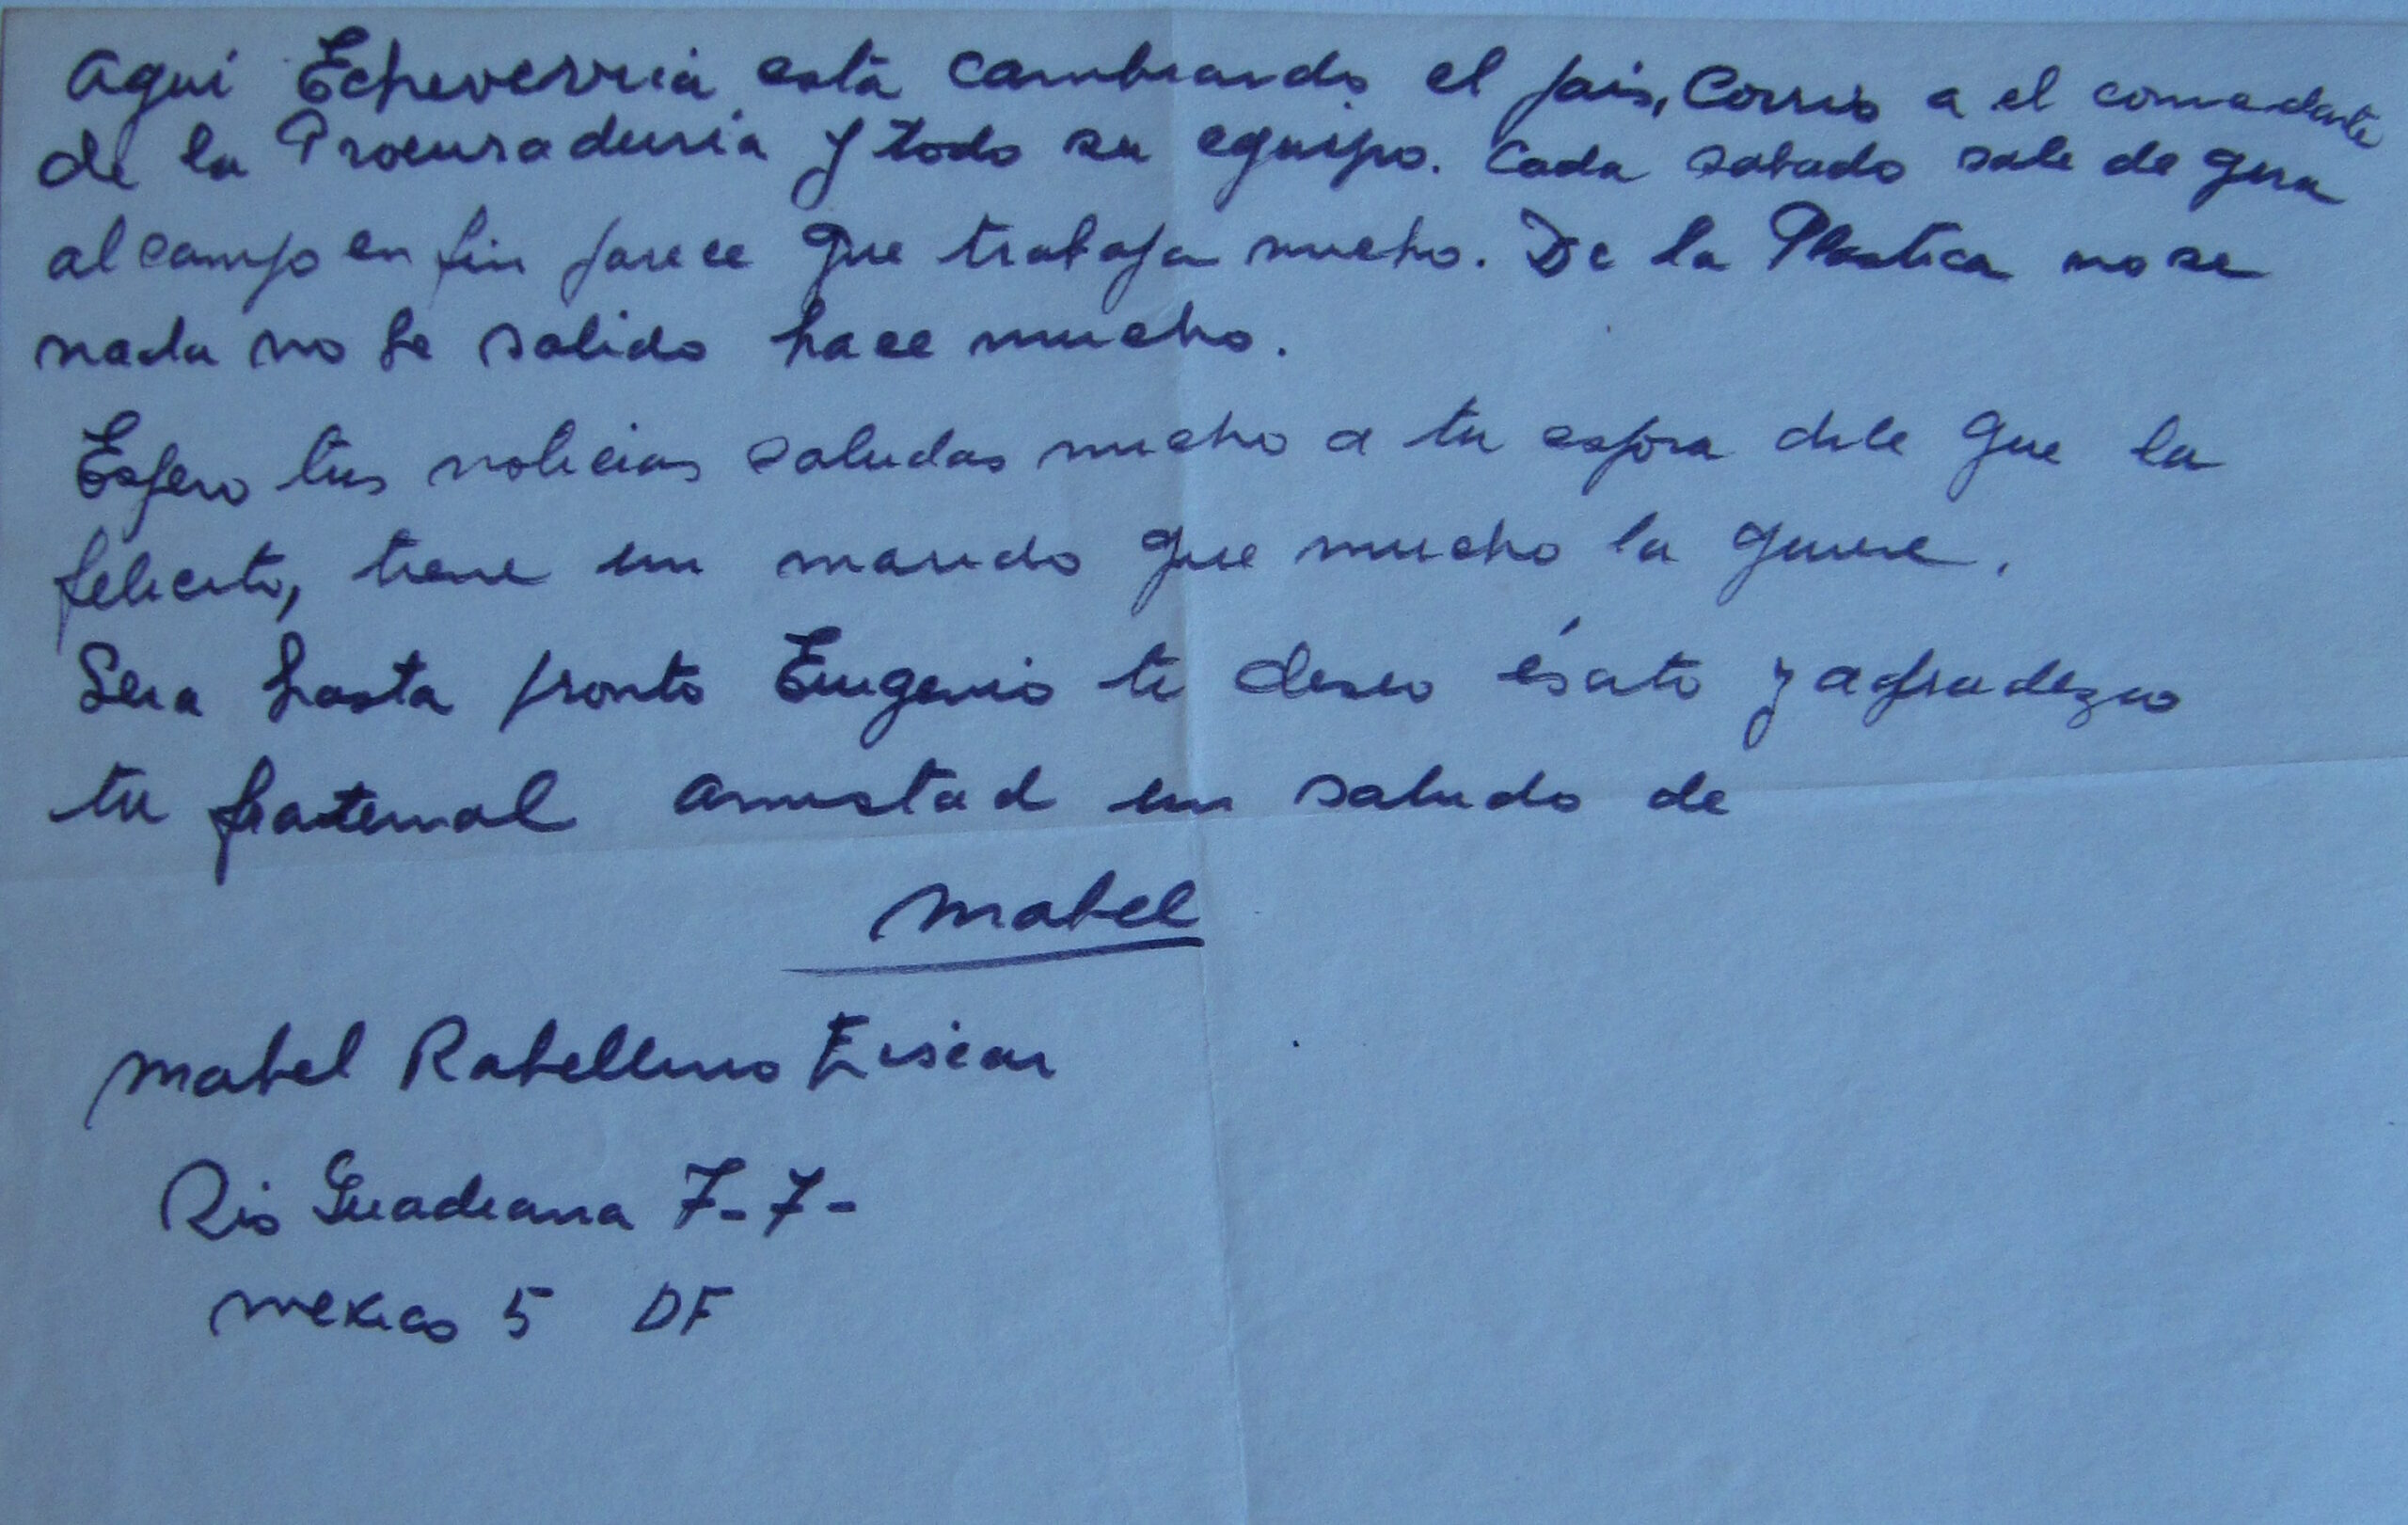 Aqui Echeverria está cambiando el pais, Corrio a el comandante
de la Procuraduria y todo su equipo. Cada sabado sale de gira
al campo en fin parece que trabaja mucho. De la Plastica no se
nada no he salido hace mucho.
Espero tus noticias saludas mucho a tu esposa dile que la
felicito, tiene un marido que mucho la quiere.
Sera hasta pronto Eugenio te deseo ésito y agradezco
tu fraternal amistad un saludo de
Mabel
Mabel Rabellino
Rio Guadiana 7-7-
Mexico 5 DF